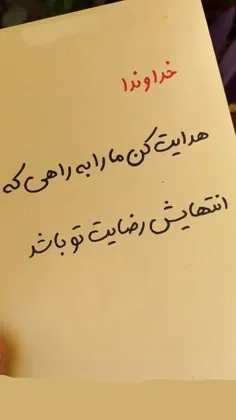 خداوندا
هدایت کن ما را به راهی که
انتهایش رضایت تو باشد